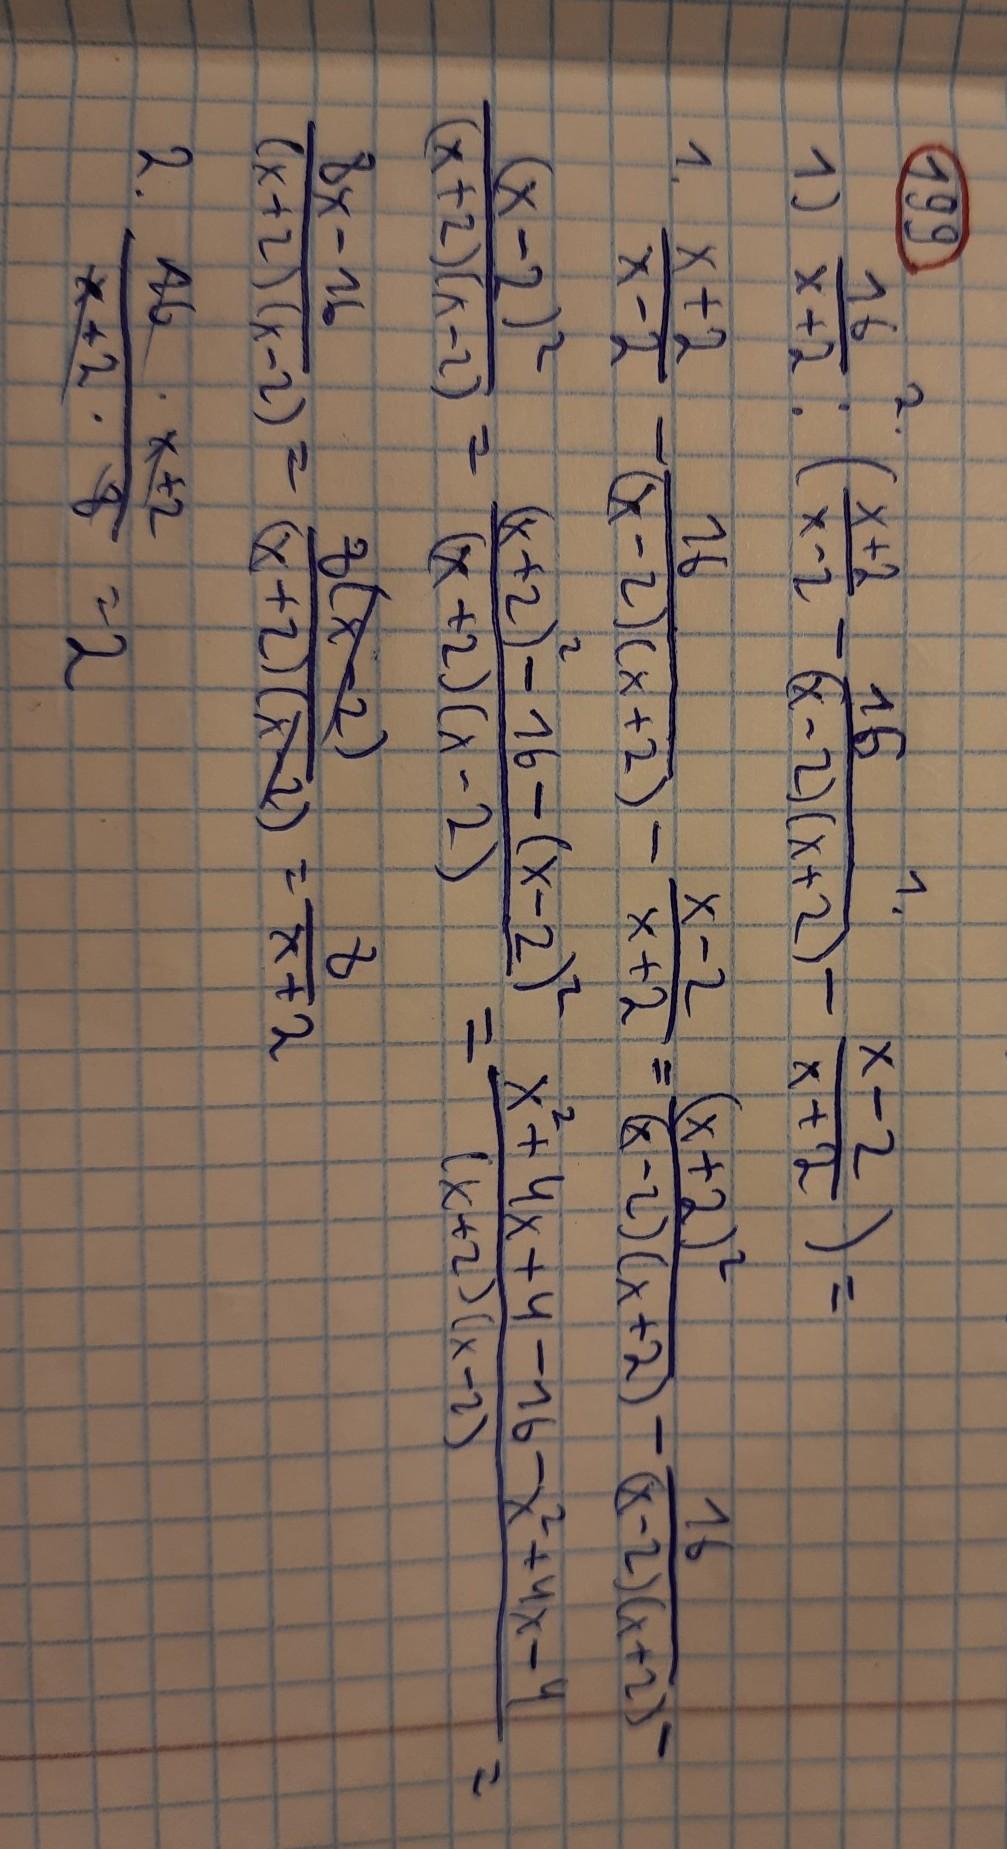 199
1) 16/(x+2) : ((x+2)/(x-2) - 16/((x-2)(x+2)) - (x-2)/(x+2)) =
2. 1.
1. (x+2)/(x-2) - 16/((x-2)(x+2)) - (x-2)/(x+2) = (x+2)²/((x-2)(x+2)) - 16/((x-2)(x+2)) -
(x-2)²/((x+2)(x-2)) = ((x+2)²-16-(x-2)²)/((x+2)(x-2)) = (x²+4x+4-16-x²+4x-4)/((x+2)(x-2)) =
(8x-16)/((x+2)(x-2)) = 8(x-2)/((x+2)(x-2)) = 8/(x+2)
2. (16 · x+2)/(x+2 · 8) = 2